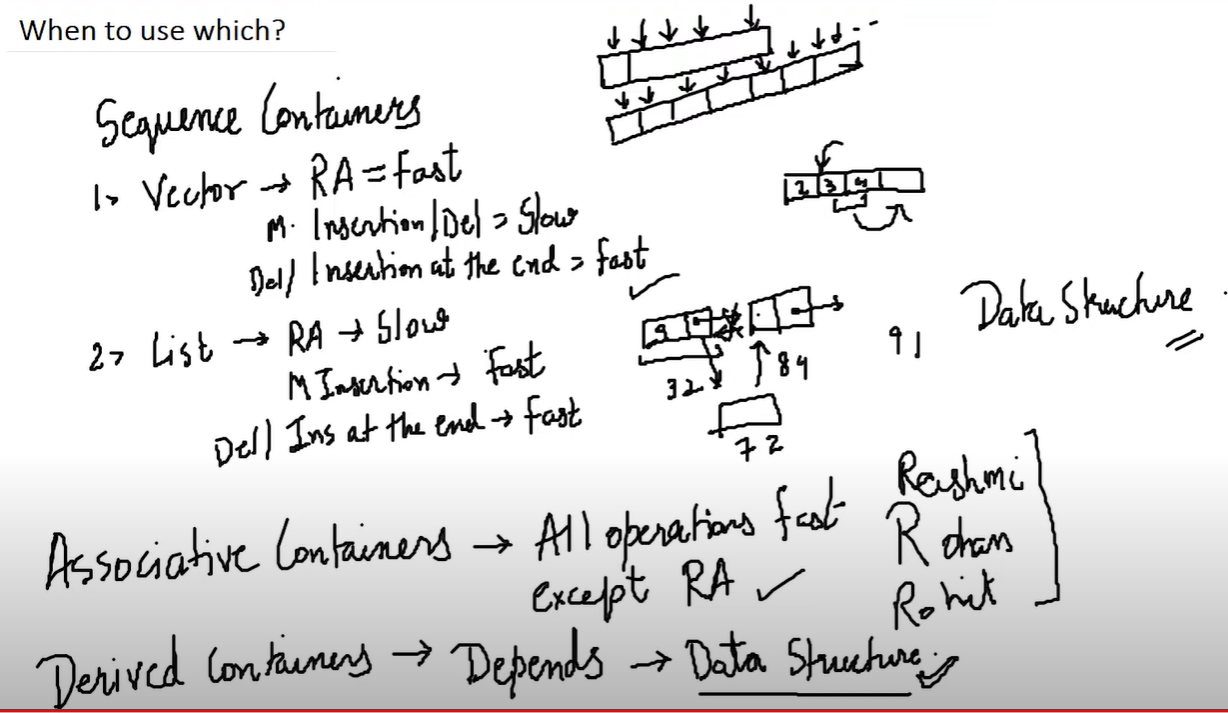 When to use which?
Sequence Containers
1> Vector → RA = Fast
M. Insertion/Del = Slow
Del/ Insertion at the end = fast
2> List → RA → Slow
M Insertion → fast
Del/ Ins at the end → fast
2 3 4
9
32
84
72
91
Data Structure
Associative Containers → All operations fast
except RA ✓
Rashmi
Rohan
Rohit
Derived Containers → Depends → Data Structure.